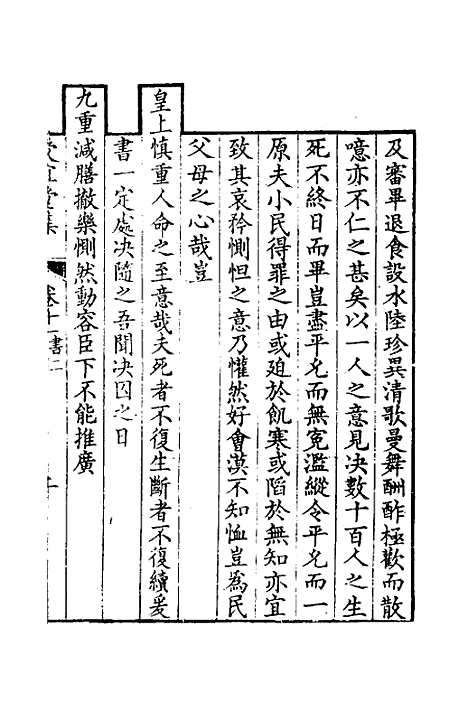 及審畢退食設水陸珍異清歌曼舞酬酢極歡而散
噫亦不仁之甚矣以一人之意見决數十百人之生
死不終日而畢豈盡平允而無寃濫縱令平允而一
原夫小民得罪之由或廹於飢寒或䧟於無知亦宜
致其哀矜惻怛之意乃懽然好會漠不知恤豈爲民
父母之心哉豈
皇上慎重人命之至意哉夫死者不復生斷者不復續爰
書一定處决隨之吾聞决囚之日
九重減膳撤樂惻然動容臣下不能推廣
堂集
卷十一書二